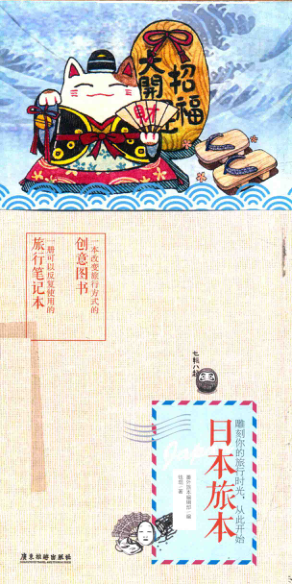 招福
大開
財
一本改变旅行方式的
创意图书
一册可以反复使用的
旅行笔记本
七転八起
雕刻你的旅行时光，从此开始
日本旅本
Japan
广东旅游出版社